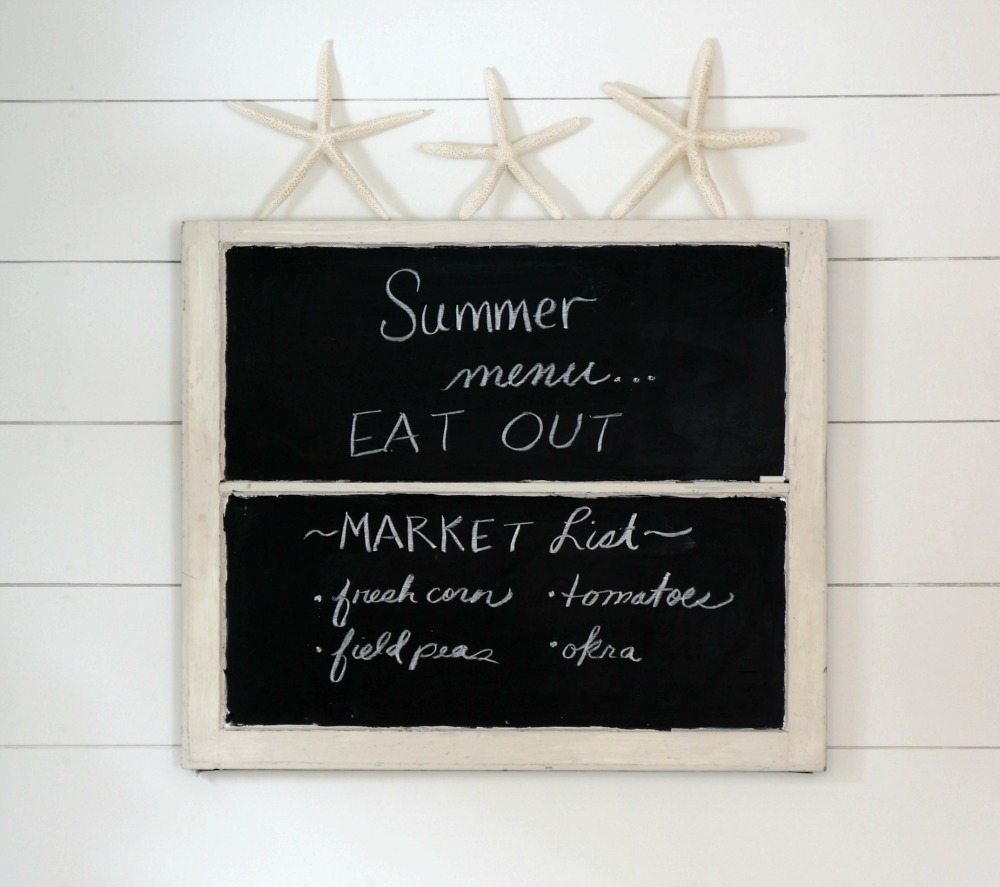 Summer
menu...
EAT OUT
~MARKET List~
• fresh corn • tomatoes
• field peas • okra